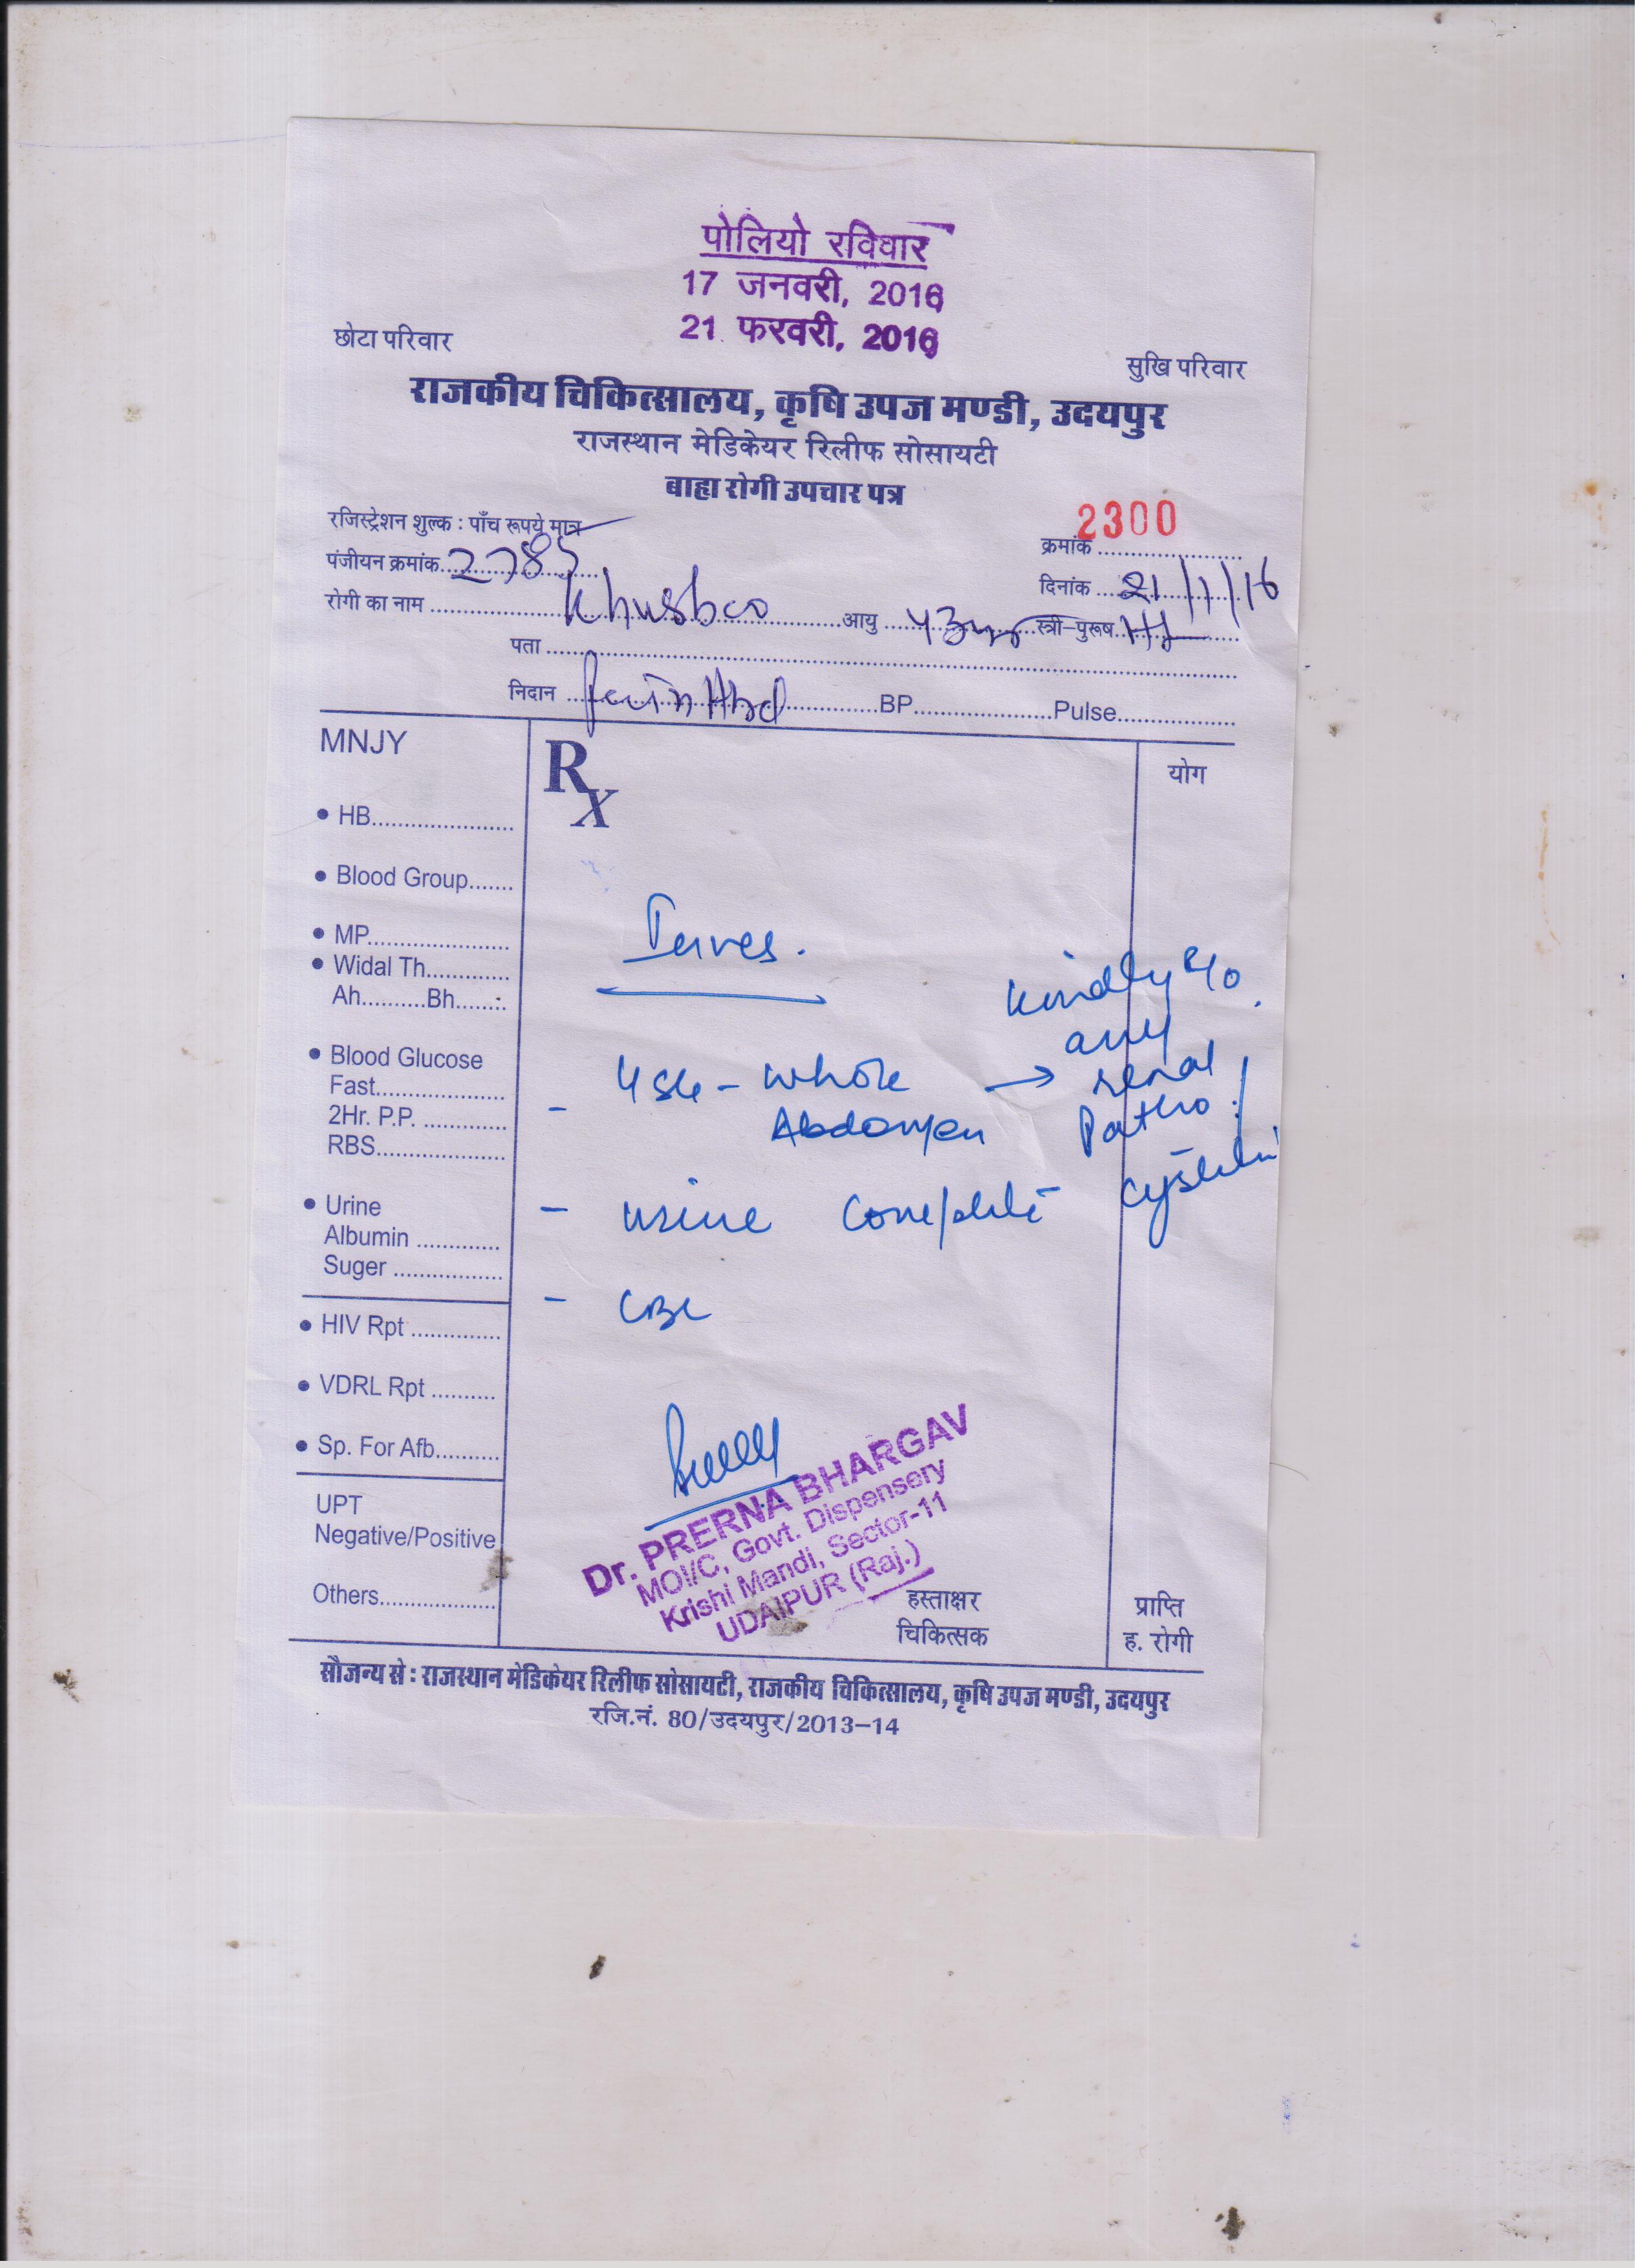 पोलियो रविवार
17 जनवरी, 2016
21 फरवरी, 2016
छोटा परिवार
सुखि परिवार
राजकीय चिकित्सालय, कृषि उपज मण्डी, उदयपुर
राजस्थान मेडिकेयर रिलीफ सोसायटी
बाहा रोगी उपचार पत्र
रजिस्ट्रेशन शुल्क : पाँच रूपये मात्र
2300
क्रमांक
पंजीयन क्रमांक
दिनांक 21/1/16
रोगी का नाम Khusboo आयु स्त्री-पुरूष
पता
निदान BP Pulse
MNJY
Rx
योग
• HB
• Blood Group
• MP
• Widal Th
Ah Bh
• Blood Glucose
Fast
2Hr. P.P.
RBS
• Urine
Albumin
Suger
• HIV Rpt
• VDRL Rpt
• Sp. For Afb
UPT
Negative/Positive
Others
Inves.
- USG - whole Abdomen → Kindly R/o any renal Patho / cystitis
- urine complete
- CBC
Dr. PRERNA BHARGAV
MOI/C, Govt. Dispensery
Krishi Mandi, Sector-11
UDAIPUR (Raj.)
हस्ताक्षर
चिकित्सक
प्राप्ति
ह. रोगी
सौजन्य से : राजस्थान मेडिकेयर रिलीफ सोसायटी, राजकीय चिकित्सालय, कृषि उपज मण्डी, उदयपुर
रजि.नं. 80/उदयपुर/2013-14